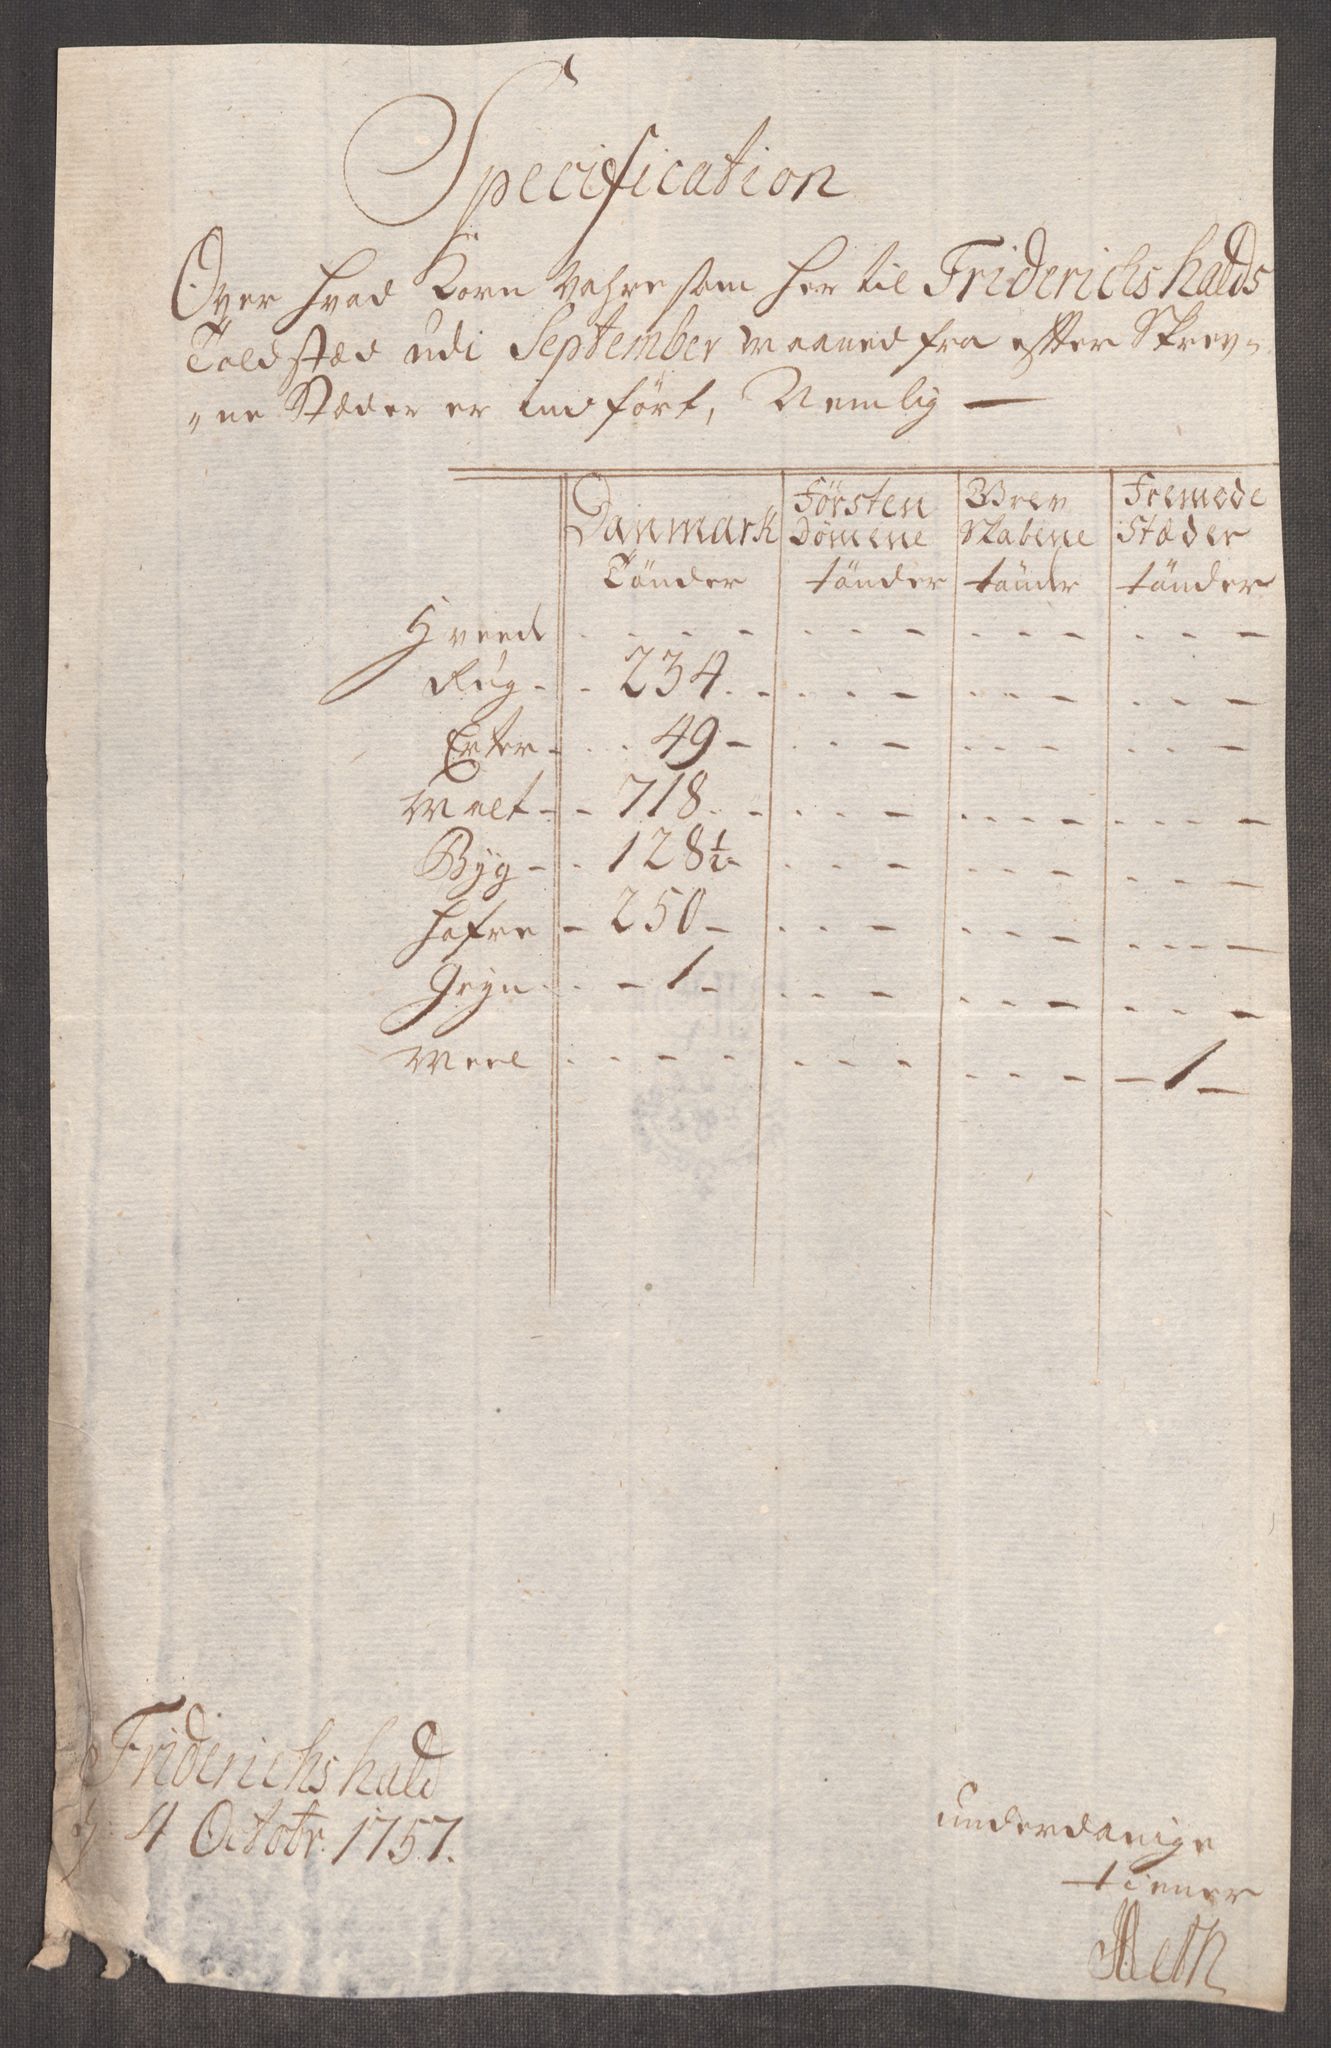 Specification
Over hvad Korn Vahre som her til Friderichshalds
Toldstæd udi September maaned fra efter Skrev=
=ne Stæder er indført, Nemlig —
Danmark Tönder | Førsten Dömene tönder | Grev Skabene tönder | Fremede Stæder tönder
Hveede - - - -
Rug - - 234 - -
Erter - - 49 -
Malt - - 718 - -
Byg - - 128½ -
Hafre - 250 -
Gryn - - 1 -
Meel - - - - | - - - | - - - | - 1 -
Friderichshald
4 Octobr. 1757.
underdanige
tiener